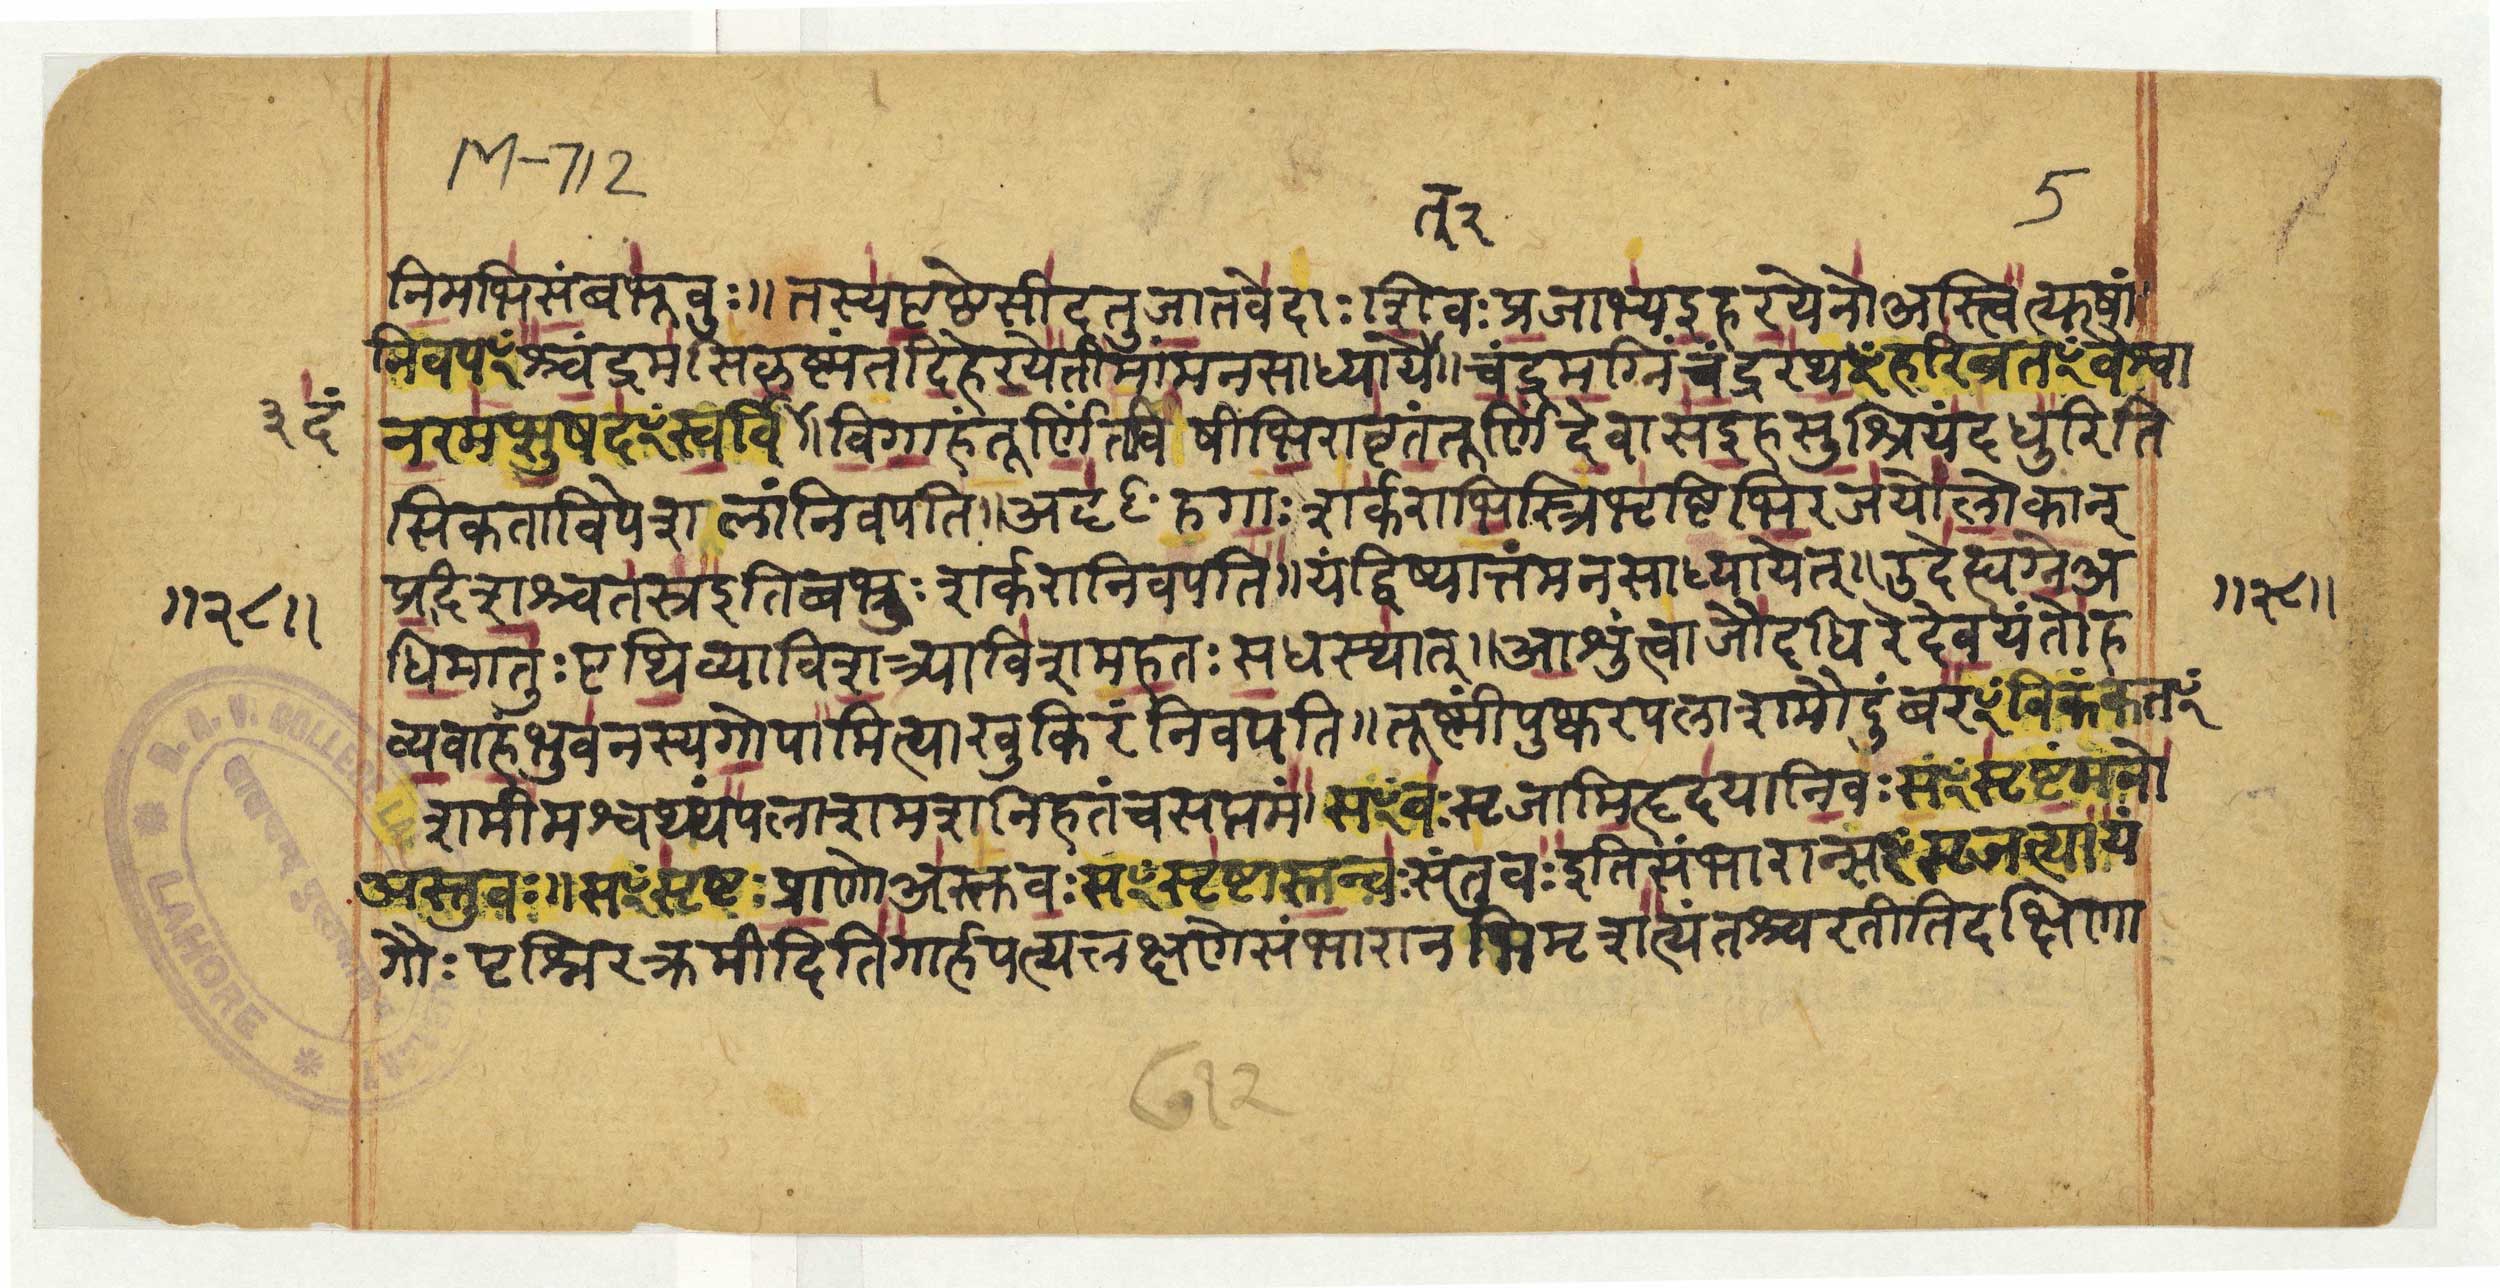 M-712
त् २
5
निमभिसंबभूवुः॥ तस्यपृष्ठेसीदतुजातवेदाः शिवः प्रजाभ्यइहरयेनोअस्त्वित्यूषां
निवपꣳश्चंद्रमसिकृष्णंतदिहेरयेतीमांमनसाध्यायै॥ चंद्रमग्निंचंद्ररथꣳहरिव्रतꣳवैश्वा
३ दं
नरमप्सुषदꣳस्वर्वि॥ विगाहंतूर्णिंतविषीभिरावृतंतूर्णिंदेवासइहसुश्रियंदधुरिति
सिकताविपेशलांनिवपति॥ अदृꣳहगाः शर्कराभिस्त्रिभृष्टिभिरजयोलोकान्
॥२८॥
प्रदिशश्चतस्रइतिबभ्रुः शर्करानिवपति॥ यंद्विष्यात्तंमनसाध्यायेत्॥ उदेह्यग्नेअ
॥२८॥
धिमातुः पृथिव्याविशात्र्याविशमहतः सधस्थात्॥ आशुंत्वाजौदधिरेदेवयंतोह
व्यवाहंभुवनस्यगोपामित्याखुकिरंनिवपति॥ तूष्णींपुष्करपलाशमौदुंबरꣳविकंकतꣳ
शमीमश्वथ्थंपलाशमशनिहतंचसप्तमं। सꣳवः सृजामिहृदयानिवः सꣳसृष्टंमनो
अस्तुवः॥ सꣳसृष्टः प्राणोअस्तवः सꣳसृष्टास्तन्वः संतुवः इतिसंभारान्सꣳसृजत्यायं
गौः पृश्निरक्रमीदितिगार्हपत्यलक्षणेसंभारानभिमृशत्यंतश्चरतीतिदक्षिणा
D. A. V. COLLEGE
LAHORE
७१२